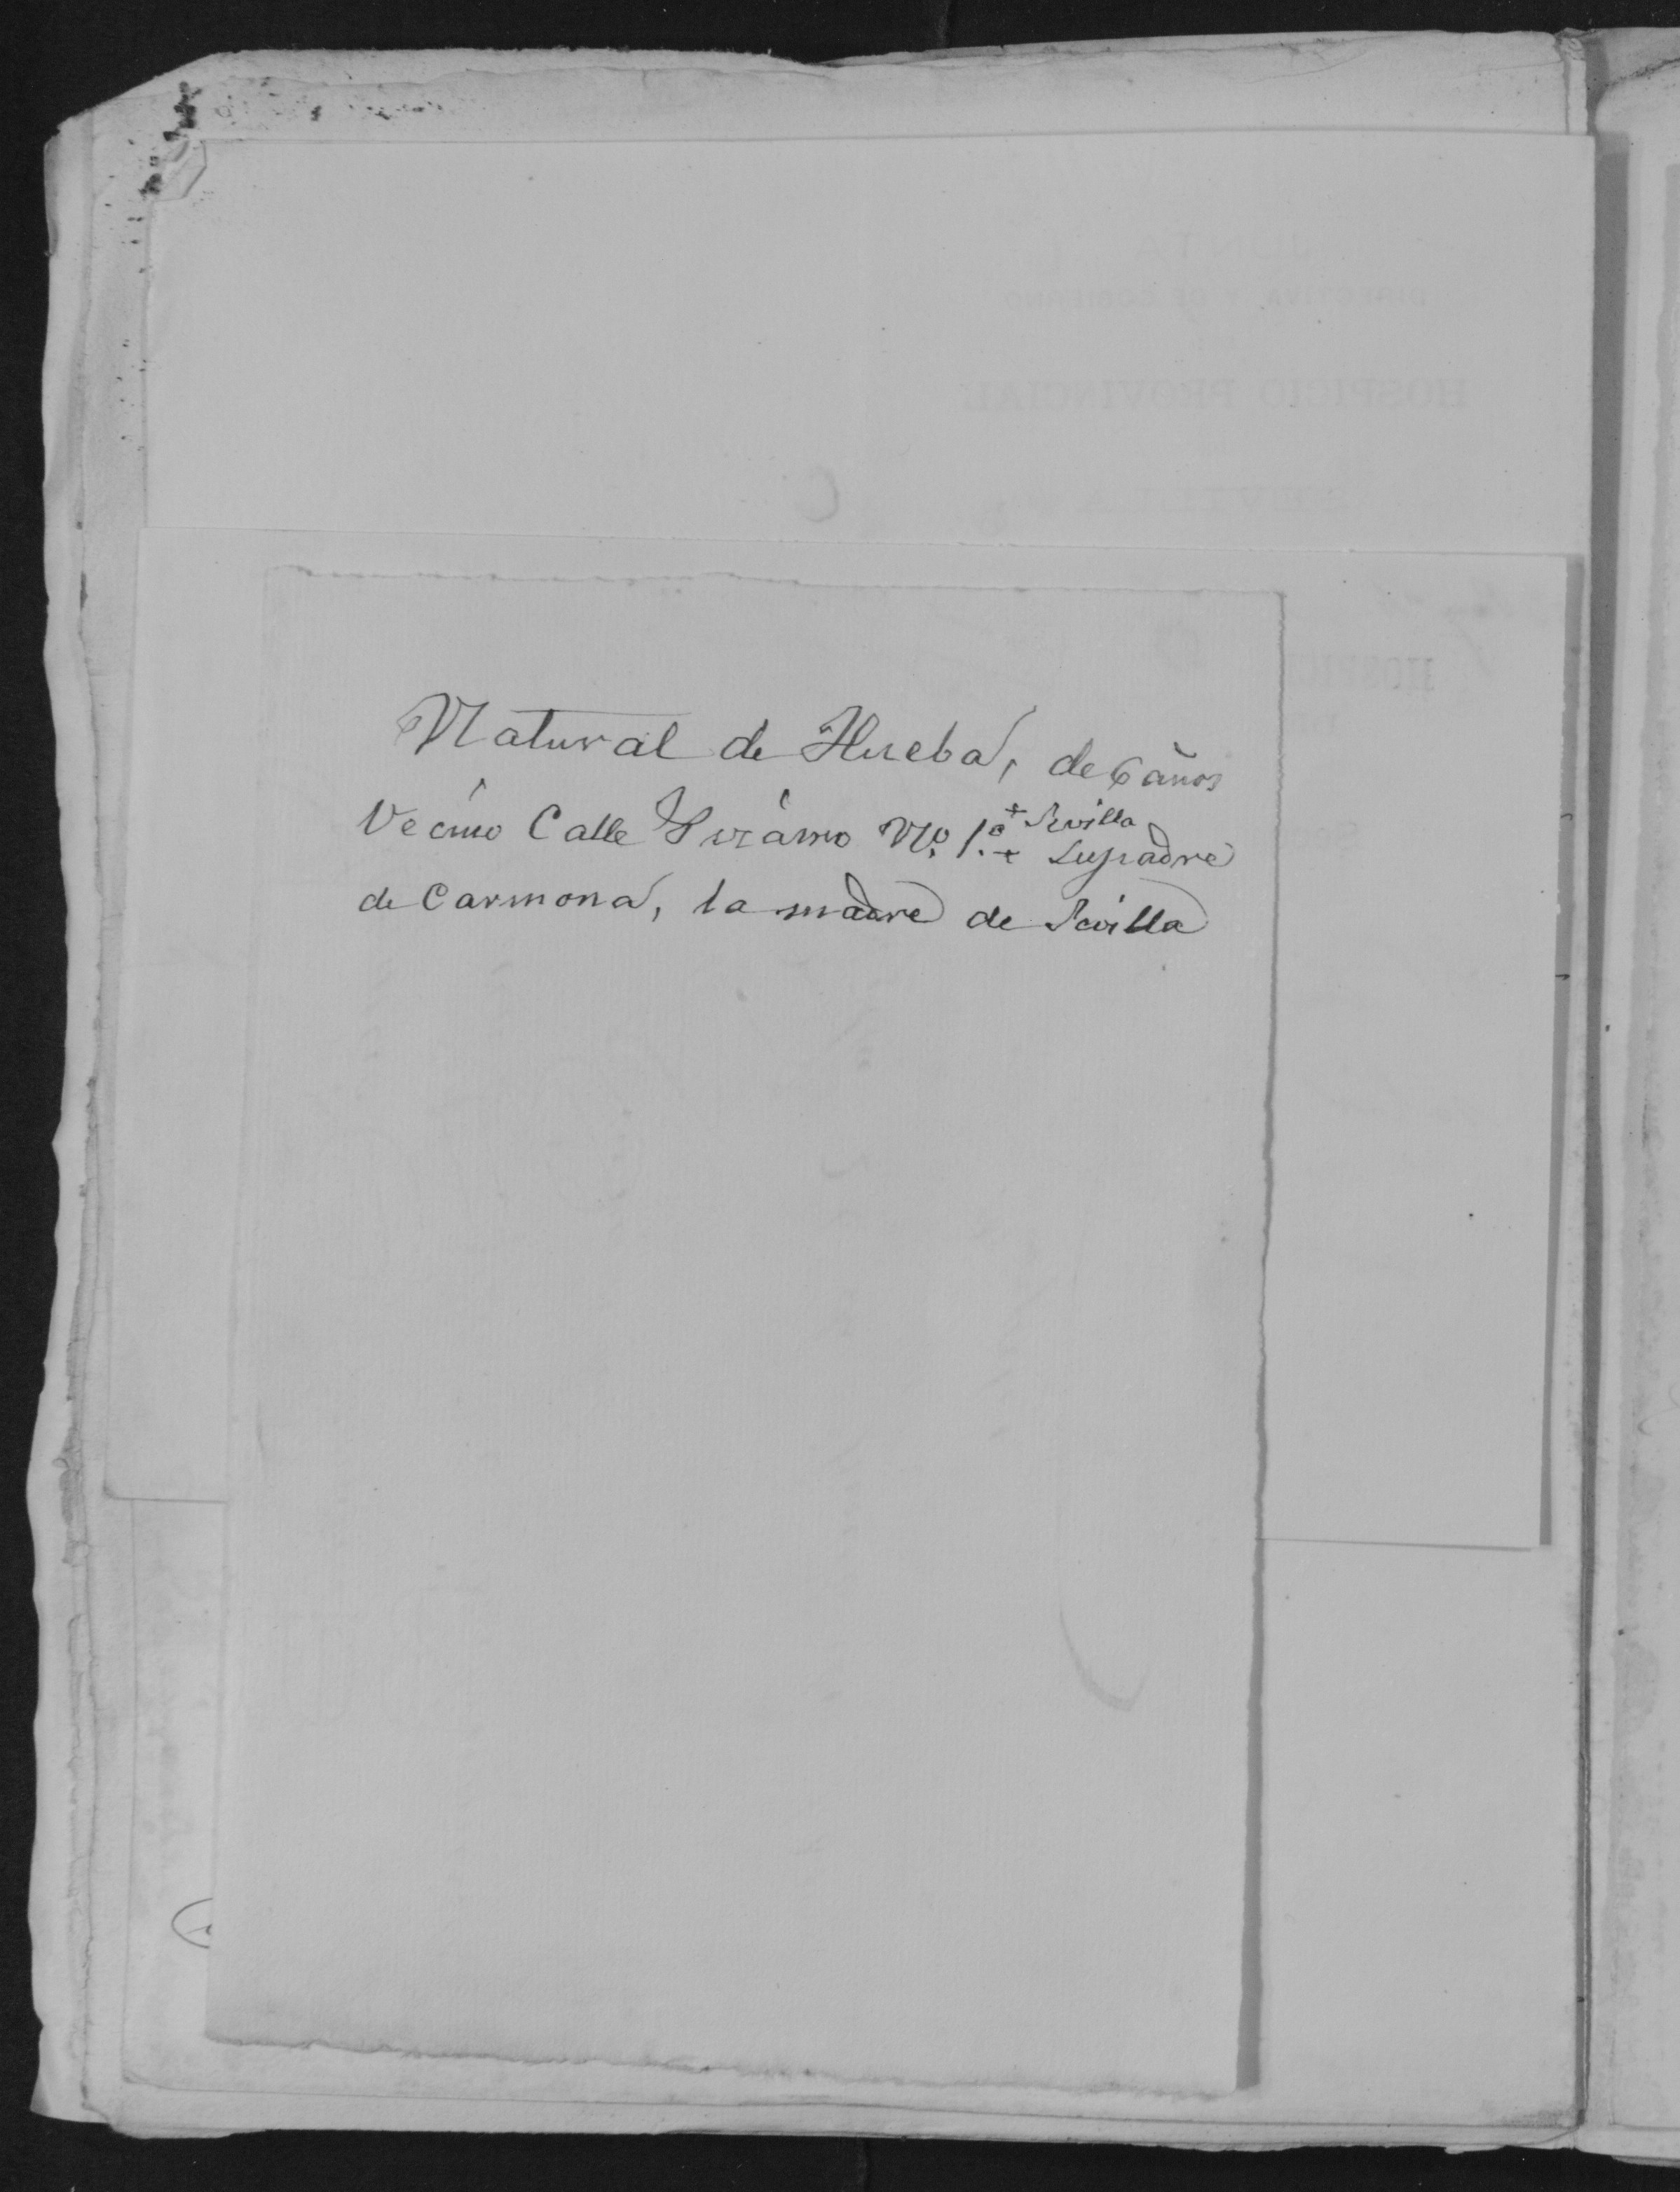 Natural de Huebá, de 6 años
Vecino Calle N.º 1.º + Sevilla
+ Su padre
de Carmona, la madre de Sevilla
JUNTA
DIRECTIVA Y DE GOBIERNO
HOSPICIO PROVINCIAL